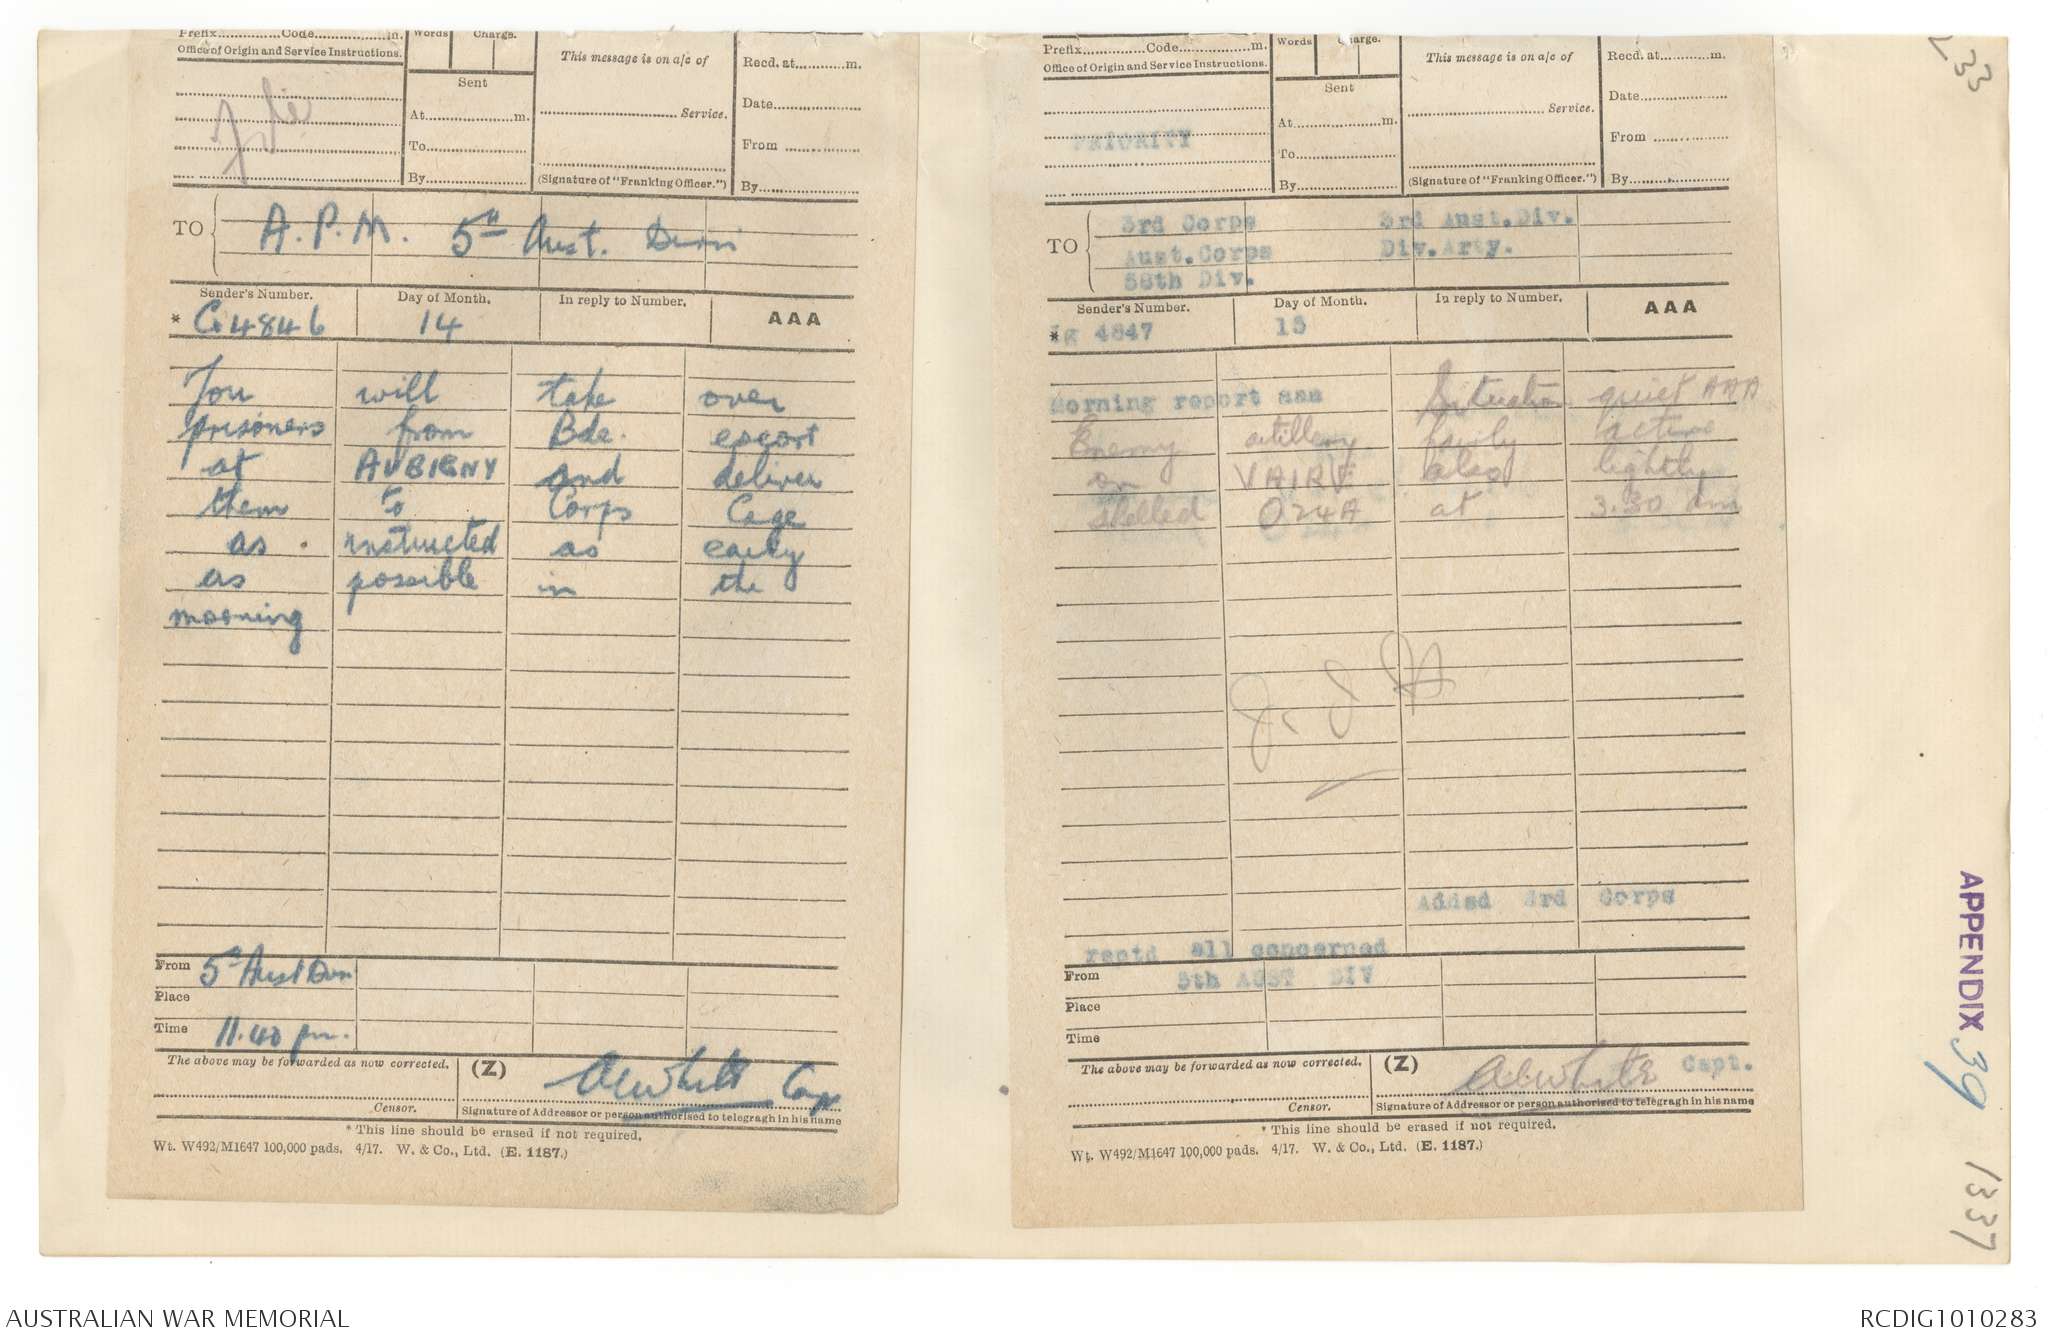 Prefix............Code............m.
Words
Charge.
Office of Origin and Service Instructions.
This message is on a/c of
Recd. at............m.
Sent
Date............
At............m.
Service.
To............
From ............
By............
(Signature of "Franking Officer.")
By............
TO
A.P.M. 5th Aust. Divn
Sender's Number.
Day of Month.
In reply to Number.
AAA
* G4846
14
You will take over
prisoners from Bde. escort
at AUBIGNY and deliver
them to Corps Cage
as instructed as early
as possible in the
morning
From 5th Aust Divn
Place
Time 11.40 pm.
The above may be forwarded as now corrected.
(Z)
A C White Capt
Censor.
Signature of Addressor or person authorised to telegraph in his name
* This line should be erased if not required.
Wt. W492/M1647 100,000 pads. 4/17. W. & Co., Ltd. (E. 1187.)
Prefix............Code............m.
Words
Charge.
Office of Origin and Service Instructions.
This message is on a/c of
Recd. at............m.
Sent
Date............
PRIORITY
At............m.
Service.
To............
From ............
By............
(Signature of "Franking Officer.")
By............
TO
3rd Corps 3rd Aust.Div.
Aust.Corps Div.Arty.
58th Div.
Sender's Number.
Day of Month.
In reply to Number.
AAA
*Ig 4847
15
Morning report aaa Situation quiet AAA
Enemy artillery fairly active
on VAIRE also lightly
shelled O24A at 3.30 am
Added 3rd Corps
reptd all concerned
From 5th AUST DIV
Place
Time
The above may be forwarded as now corrected.
(Z)
A C White Capt.
Censor.
Signature of Addressor or person authorised to telegraph in his name
* This line should be erased if not required.
Wt. W492/M1647 100,000 pads. 4/17. W. & Co., Ltd. (E. 1187.)
APPENDIX 39
1337
AUSTRALIAN WAR MEMORIAL
RCDIG1010283